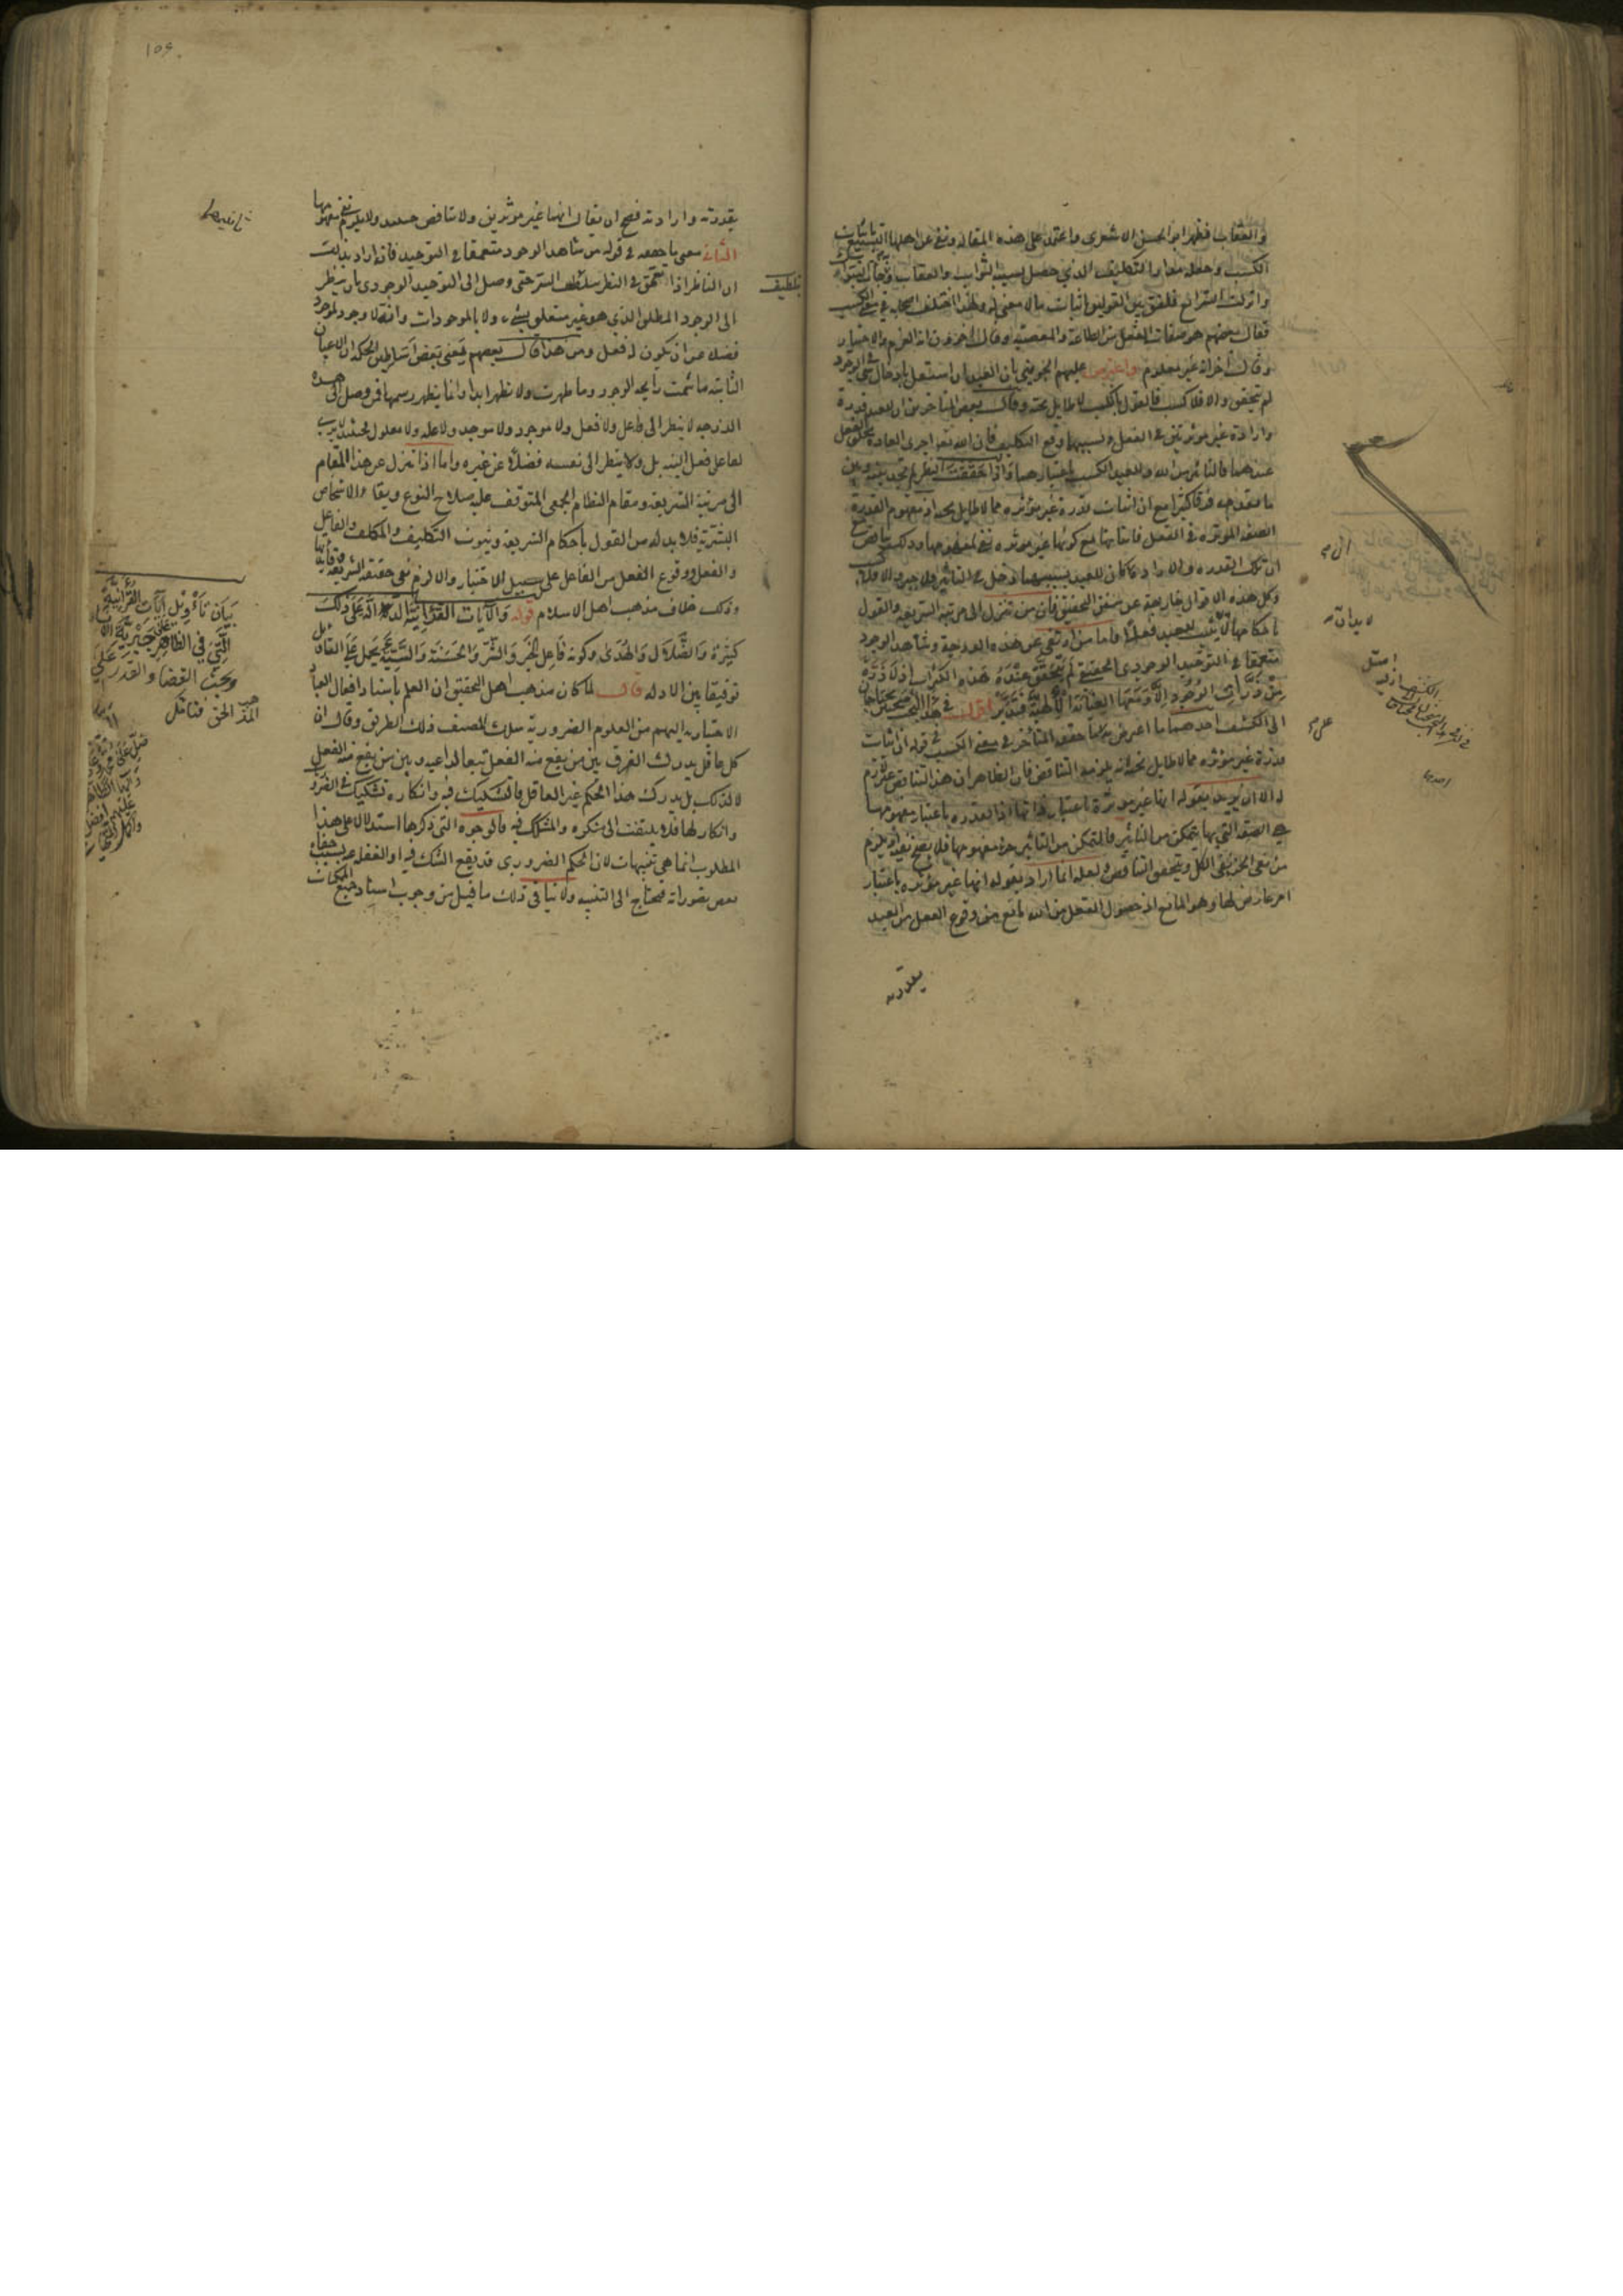 والعقاب فظهر ابو الحسن الاشعري واعتمد على هذه المقالة ونفى عن اهلها التشنيع باثبات
الكسب وجعله مدار التكليف الذي حصل بسببه الثواب والعقاب
وانزلت الشرائع فلفق بين القولين باثبات ما لا معنى له ولهذا اختلف اصحابه في معنى الكسب
فقال بعضهم هو صفات الفعل من الطاعة والمعصية وقال اخرون انه العزم والاختيار
وقال اخر انه غير معلوم واعترض عليهم الجويني بان العبد ان استقل بادخال شيء في الوجود
لم يتحقق والا فلا كسب فالقول بالكسب لا طايل تحته وقال بعض المتاخرين ان للعبد قدرة
وارادة غير موثرتين في الفعل وبسببهما وقع التكليف فان الله تعالى اجرى العادة بخلق الفعل
عندهما فالتاثير من الله وللعبد الكسب باعتبارهما واذا حققت النظر لم تجد بينه وبين
ما تقدمه فرقا كثيرا مع ان اثبات قدرة غير مؤثرة مما لا طايل تحته اذ مفهوم القدرة
الصفة المؤثرة في الفعل فاثباتها مع كونها غير موثره نفي لمفهومها وذلك تناقض
ان تلك القدره والاراده ان كان للعبد بسببهما دخل في التاثير والا جبر والا فلا
وكل هذه الاقوال خارجة عن منهج التحقيق فان من تنزل الى مرتبة الشريعة والقول
باحكامها اثبت للعبد فعلا واما من ارتقى عن هذه الدرجة وشاهد الوجود
متعمقا في التوحيد الوجودي الحقيقي لم يتحقق عنده هذه الكثرات اذ لا ذرة
من ذرات الوجود الا ومعها العناية الالهية فتدبر اقول في هذا البحث بحثين يحتاجان
الى الكشف احدهما ما اعترض به على محقق المتاخرين في معنى الكسب في قوله ان اثبات
قدرة غير مؤثره مما لا طايل تحته انه يلزمه التناقض فان الظاهر ان هذا التناقض غير لازم
له الا ان يريد بقوله انها غير موثرة باعتبار ذاتها اذا القدره باعتبار مفهومها
هي الصفة التي بها يتمكن من التاثير فالتمكن من التاثير جزء مفهومها فلا يصح نفيه اذ يلزم
من نفي الجزء نفي الكل ويتحقق التناقض ولعله انما اراد بقوله انها غير مؤثره باعتبار
امر عارض لها وهو المانع اذ حصول الفعل من الله مانع من وقوع الفعل من العبد
بقدرته
احديها
بقدرته وارادته فصح ان يقال انهما غير موثرتين ولا تناقض حينئذ ولا يلزم نفي مفهومها
ثانيها
الثاني معنى ما جعله في قوله من شاهد الوجود متعمقا في التوحيد فانه اراد بذلك
ان الناظر اذا تعمق في النظر بتلطيف السر حتى وصل الى التوحيد الوجودي بان ينظر
بتلطيف
الى الوجود المطلق الذي هو غير متعلق بشيء ولا بالموجودات وانه لا وجود لموجود
فضلا عن ان يكون له فعل ومن هنا قال بعضهم يعني بعض اساطين الحكمة ان الاعيان
الثابته ما شمت رايحة الوجود وما ظهرت ولا تظهر ابدا وانما يظهر رسمها فمن وصل الى هذه
الدرجه لا ينظر الى فاعل ولا فعل ولا موجود ولا موجد ولا علة ولا معلول فحينئذ لا يرى
لفاعل فعل البتة بل ولا ينظر الى نفسه فضلا عن غيره واما اذا تنزل عن هذا المقام
الى مرتبة الشريعة ومقام النظام الجمعي المتوقف عليه صلاح النوع وبقاء الاشخاص
البشرية فلا بد له من القول باحكام الشريعة وثبوت التكليف والمكلف والفاعل
والفعل ووقوع الفعل من الفاعل على سبيل الاختيار والا لزم نفي حقيقة الشريعة
وذلك خلاف مذهب اهل الاسلام قوله والآيات القرآنية الدالة على ذلك
كثيرة والضلال والهدى وكونه فاعل الخير والشر والحسنة والسيئة يحمل على التاويل
توفيقا بين الادله قال لما كان مذهب اهل التحقيق ان العلم باسناد افعال العباد
الاختياريه اليهم من العلوم الضرورية سلك المصنف ذلك الطريق وقال ان
كل عاقل يدرك الفرق بين من يقع منه الفعل تبعا لداعيه وبين من يقع منه الفعل
لا لذلك بل يدرك هذا الحكم غير العاقل فالتشكيك فيه وانكاره تشكيك في الضروريات
وانكار لها فلا يلتفت الى منكره والمشكك فيه فالوجوه التي ذكرها استدلالا على هذا
المطلوب انما هي تنبيهات لان الحكم الضروري قد يقع الشك فيه او الغفلة عنه بسبب خفاء
بعض تصوراته فيحتاج الى التنبيه ولا ينافي ذلك ما قيل من وجوب استناد جميع الممكنات
بيان تأويل آيات القرآنية
التي في الظاهر جبرية
وبحث القضا والقدر على
المذهب الحق فتامل